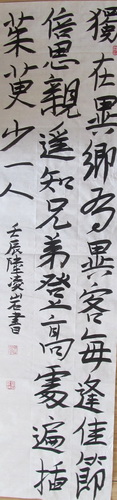 獨在異鄉為異客每逢佳節
倍思親遥知兄弟登高處遍插
茱萸少一人
壬辰陸凌岩書